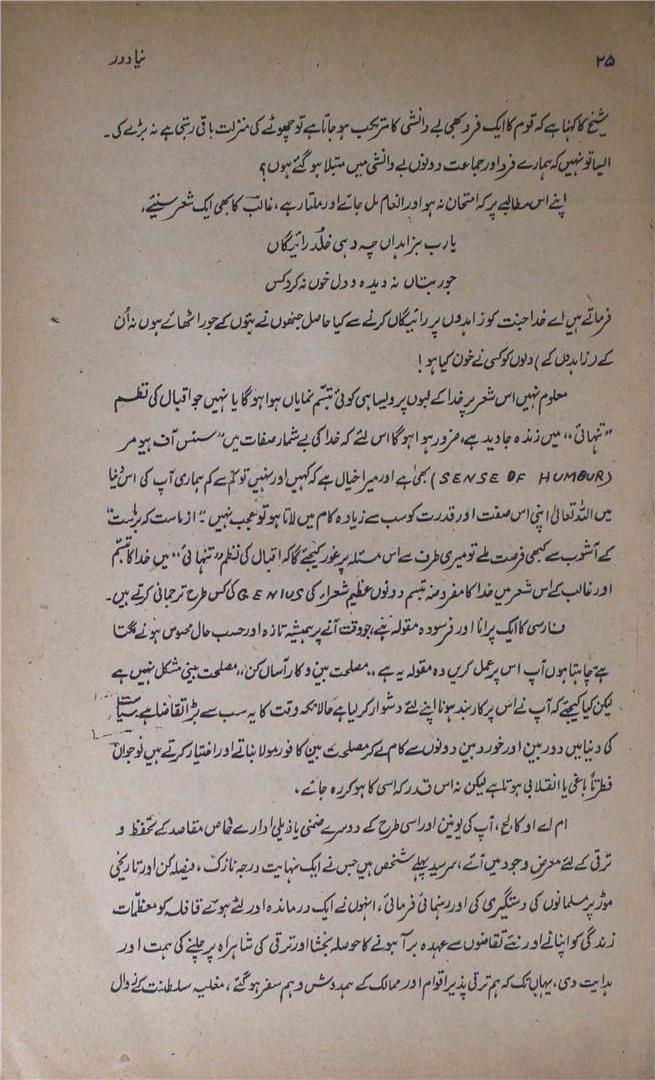 ۲۵ نیا دور
شیخ کا کہنا ہے کہ قوم کا ایک فرد کبھی بے دانشی کا مرتکب ہو جاتا ہے تو چھوٹے کی منزلت باقی رہتی ہے نہ بڑے کی۔
ایسا تو نہیں کہ ہمارے فرد اور جماعت دونوں بے دانشی میں مبتلا ہو گئے ہوں؟
اپنے اس مطالبے پر کہ امتحان نہ ہو اور انعام مل جائے اور ملتا رہے، غالب کا بھی ایک شعر سنیئے،
یارب بزاہداں چہ دہی خلد رائیگاں
جور بتاں نہ دیدہ و دل خوں نہ کرد کس
فرماتے ہیں اے خدا جنت کو زاہدوں پر رائیگاں کرنے سے کیا حاصل جنھوں نے بتوں کے جور اٹھائے ہوں نہ اُن
کے (زاہدوں کے) دلوں کو کسی نے خون کیا ہو!
معلوم نہیں اس شعر پر خدا کے لبوں پر ویسا ہی کوئی تبسّم نمایاں ہوا ہو گا یا نہیں جو اقبال کی نظم
”تنہائی“ میں زندہ جاوید ہے، ضرور ہوا ہو گا اس لئے کہ خدا کی بے شمار صفات میں ”سنس آف ہیومر
(SENSE OF HUMOUR) بھی ہے اور میرا خیال ہے کہ کہیں اور نہیں تو کم سے کم ہماری آپ کی اس دنیا
میں اللہ تعالیٰ اپنی اس صفت اور قدرت کو سب سے زیادہ کام میں لاتا ہو تو عجب نہیں ”از ماست کہ بر ماست“
کے آشوب سے کبھی فرصت ملے تو میری طرف سے اس مسئلہ پر غور کیجئے گا کہ اقبال کی نظم ”تنہائی“ میں خدا کا تبسّم
اور غالب کے اس شعر میں خدا کا مفروضہ تبسم دونوں عظیم شعراء کی GENIUS کی کس طرح ترجمانی کرتے ہیں۔
فارسی کا ایک پرانا اور فرسودہ مقولہ ہے، جو وقت آنے پر ہمیشہ تازہ اور حسب حال محسوس ہونے لگتا
ہے چاہتا ہوں آپ اس پر عمل کریں وہ مقولہ یہ ہے ”مصلحت بین و کار آساں کن“ مصلحت بینی مشکل نہیں ہے
لیکن کیا کیجئے کہ آپ نے اس پر کاربند ہونا اپنے لئے دشوار کر لیا ہے حالانکہ وقت کا یہ سب سے بڑا تقاضا ہے سیاست
کی دنیا میں دوربین اور خوردبین دونوں سے کام لے کر مصلحت بین کا فورمولا بناتے اور اختیار کرتے ہیں نوجوان
فطرتاً باغی یا انقلابی ہوتا ہے لیکن نہ اس قدر کہ اسی کا ہو کر رہ جائے،
ام اے او کالج، آپ کی یونین اور اسی طرح کے دوسرے ضمنی یا ذیلی ادارے خاص مقاصد کے تحفظ و
ترقی کے لئے معرض وجود میں آئے، سرسید پہلے شخص ہیں جس نے ایک نہایت درجہ نازک، فیصلہ کن اور تاریخی
موڑ پر مسلمانوں کی دستگیری کی اور رہنمائی فرمائی، انہوں نے ایک درماندہ اور لٹے ہوئے قافلہ کو معظمات
زندگی کو اپنانے اور نئے تقاضوں سے عہدہ برآ ہونے کا حوصلہ بخشا اور ترقی کی شاہراہ پر چلنے کی ہمت اور
ہدایت دی، یہاں تک کہ ہم ترقی پذیر اقوام اور ممالک کے ہمدوش و ہم سفر ہو گئے، مغلیہ سلطنت کے زوال